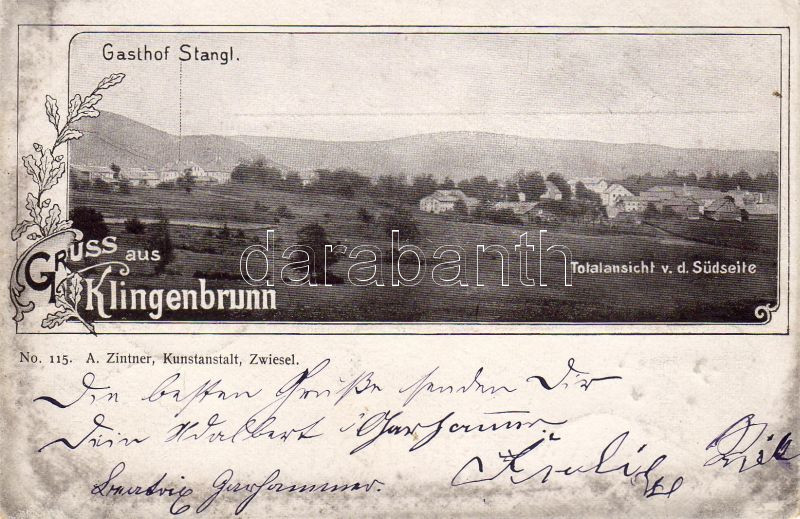 Gasthof Stangl.
Gruss aus
Klingenbrunn
darabanth
Totalansicht v. d. Südseite
No. 115. A. Zintner, Kunstanstalt, Zwiesel.
Die besten Grüße senden Dir
Dein Adalbert Garhammer.
Beatrix Garhammer.